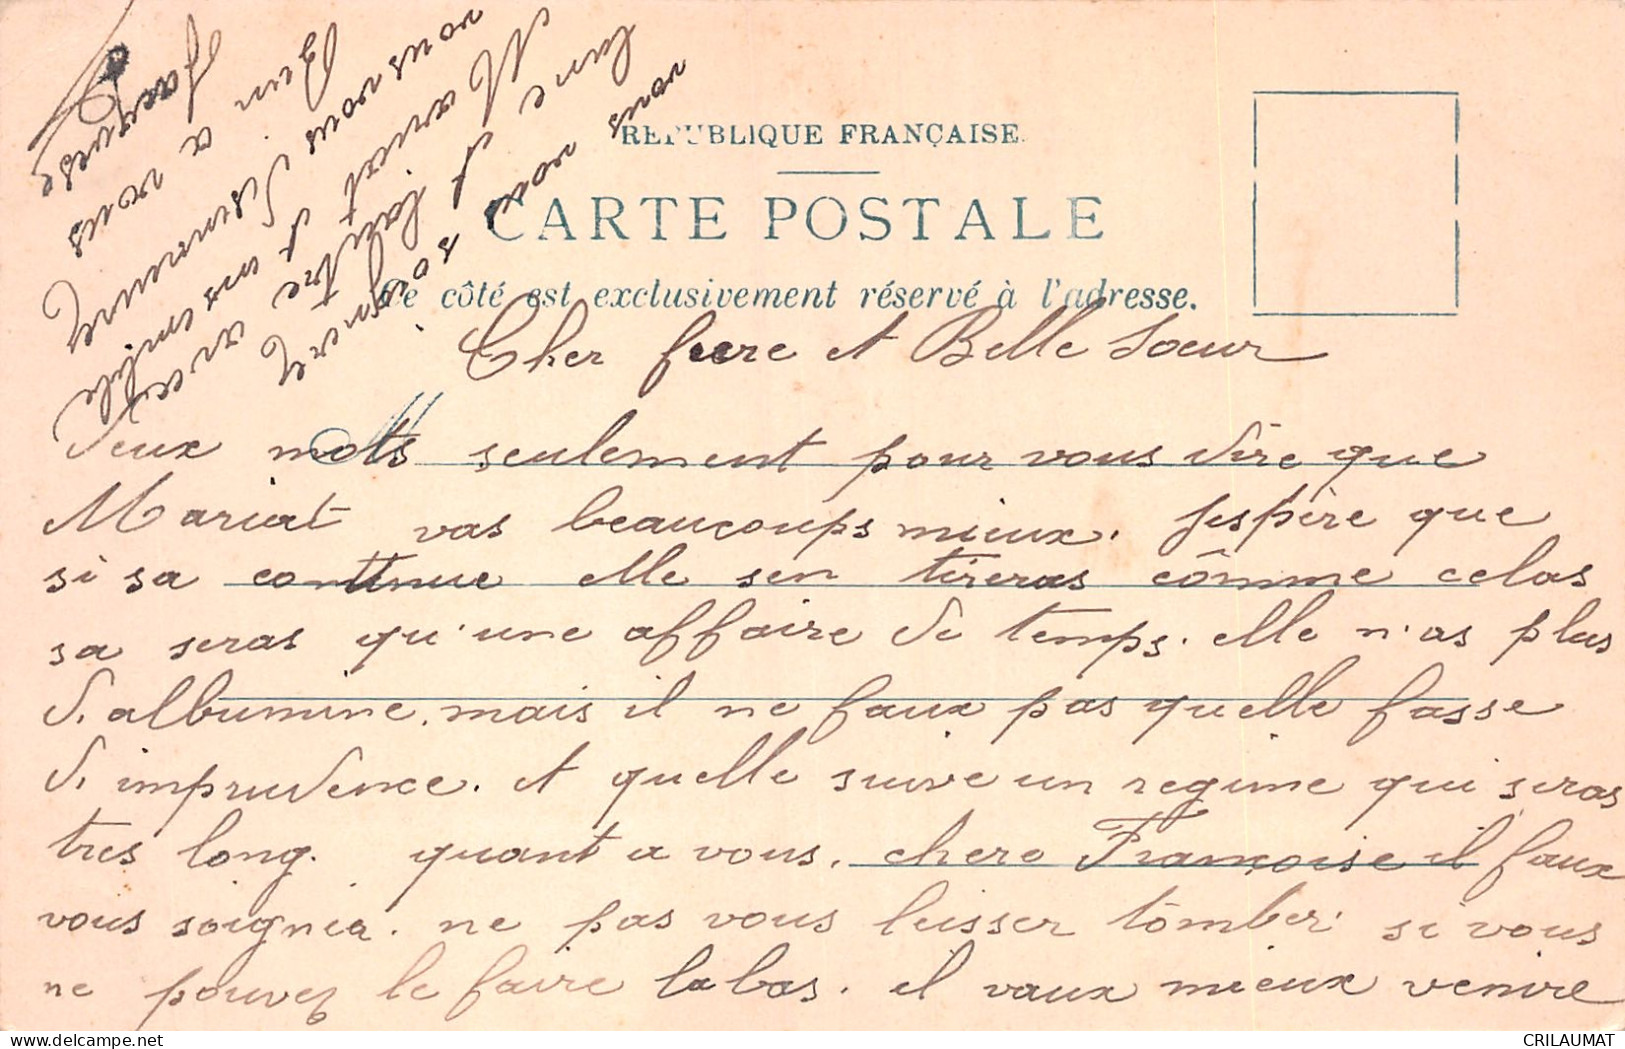 RÉPUBLIQUE FRANÇAISE
CARTE POSTALE
Ce côté est exclusivement réservé à l'adresse.
Cher frere et Belle Soeur
deux mots seulement pour vous dire que
Mariat vas beaucoups mieux. Jespère que
si sa continue elle sen tireras cômme celas
sa seras qu'une affaire de temps. elle n'as plus
d'albumine. mais il ne faux pas quelle fasse
d'imprudence. et quelle suive un regime qui seras
tres long. quant a vous. chere Françoise il faux
vous soignier. ne pas vous leisser tômber. si vous
ne pouvez le faire labas. il vaux mieux venire
vous vous soignerez
l'une et l'autre avec
Mariat et ensemble
vous vous
bien a vous
Jacques
CRILAUMAT